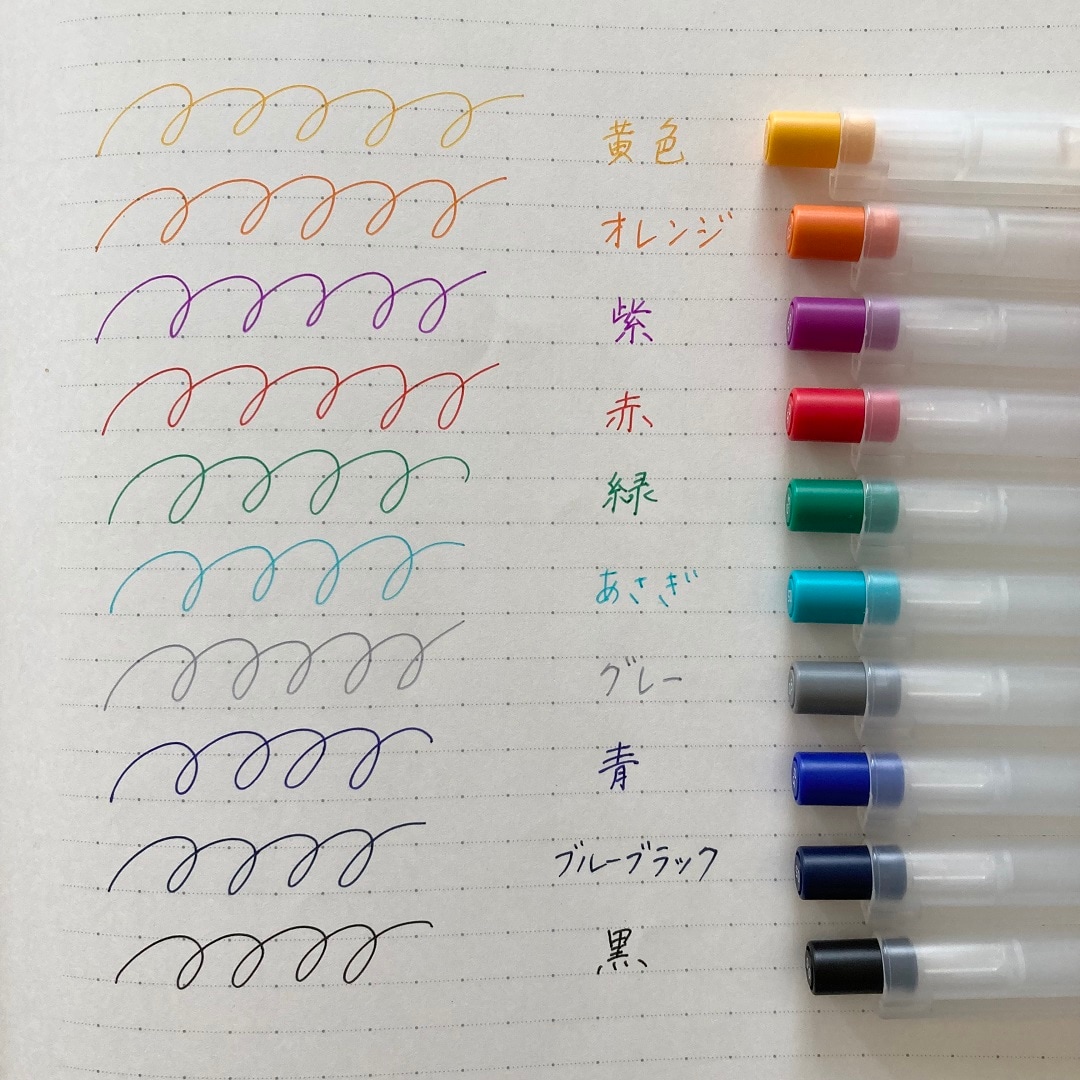 黄色
オレンジ
紫
赤
緑
あさぎ
グレー
青
ブルーブラック
黒